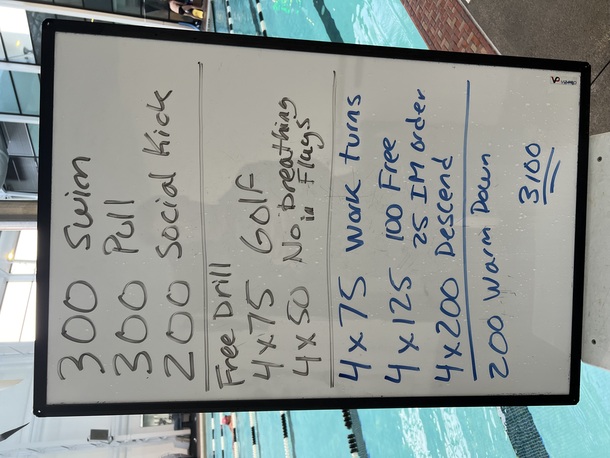 300 Swim
300 Pull
200 Social Kick
Free Drill
4x75 Golf
4x50 No Breathing
in Flags
4x75 Work turns
4x125 100 Free
25 IM order
4x200 Descend
200 Warm Down
3100